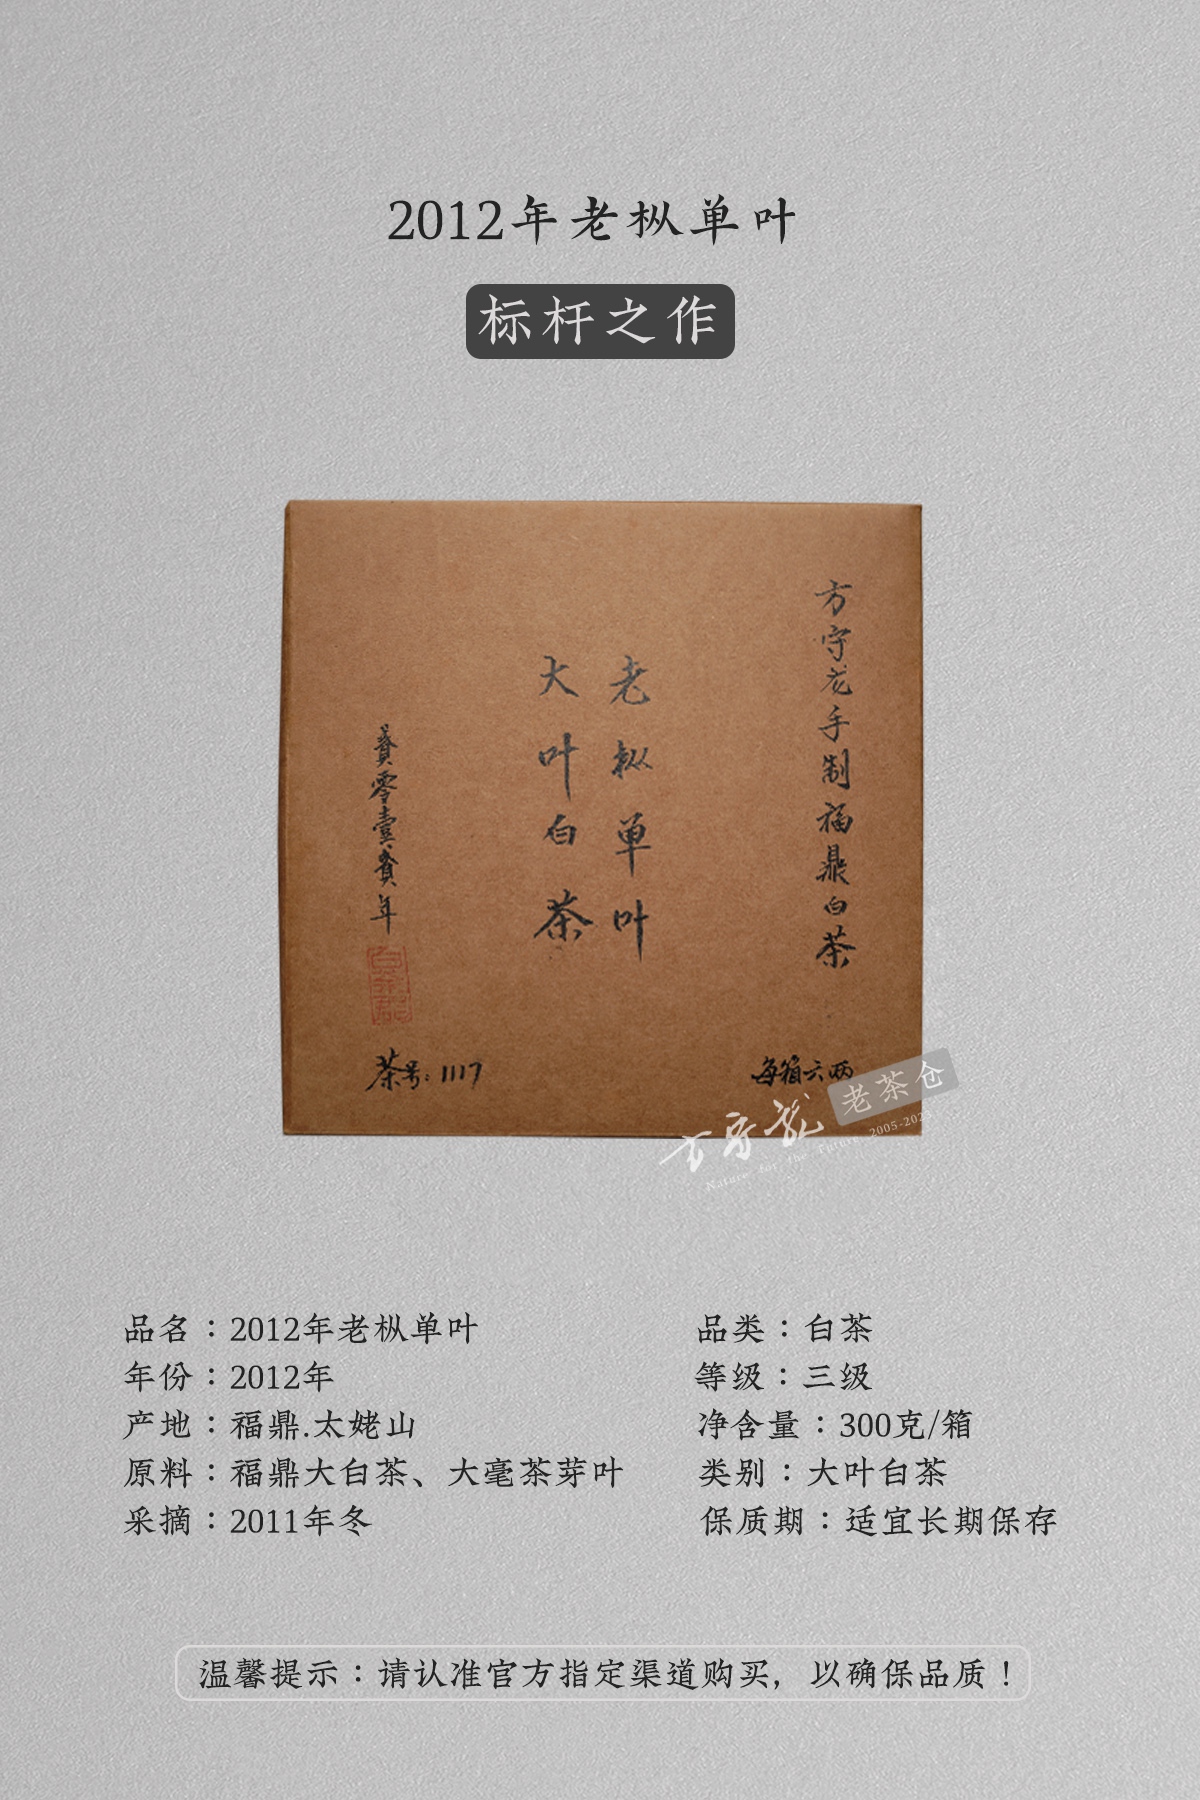 2012年老枞单叶
标杆之作
方守龙手制福鼎白茶
老枞单叶
大叶白茶
贰零壹贰年
茶号：1117
每箱六两
方守龙
老茶仓
Nature for the Future 2005-2025
品名：2012年老枞单叶
年份：2012年
产地：福鼎.太姥山
原料：福鼎大白茶、大毫茶芽叶
采摘：2011年冬
品类：白茶
等级：三级
净含量：300克/箱
类别：大叶白茶
保质期：适宜长期保存
温馨提示：请认准官方指定渠道购买，以确保品质！